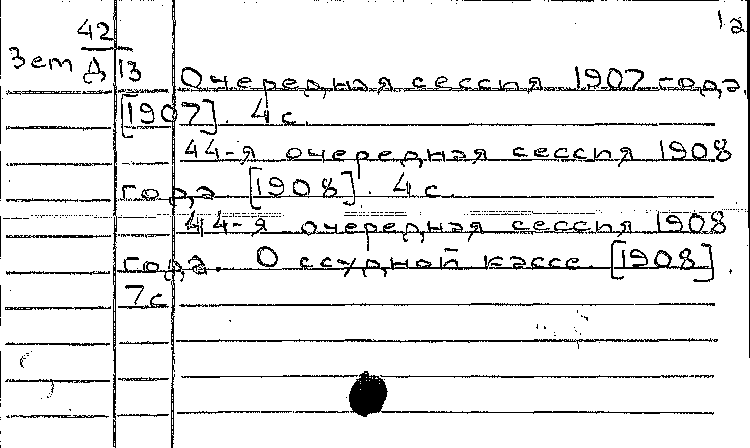 1а
42
Зем Д 13
Очередная сессия 1907 года.
[1907]. 4 с.
44-я очередная сессия 1908
года [1908]. 4 с.
44-я очередная сессия 1908
года. О ссудной кассе. [1908].
7 с